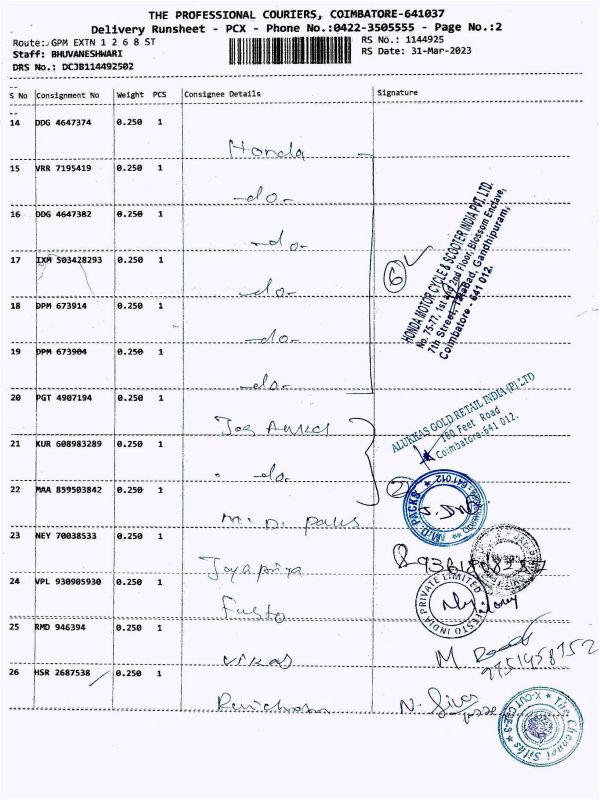 THE PROFESSIONAL COURIERS, COIMBATORE-641037
Delivery Runsheet - PCX - Phone No.:0422-3505555 - Page No.:2
Route: GPM EXTN 1 2 6 8 ST
RS No.: 1144925
Staff: BHUVANESHWARI
RS Date: 31-Mar-2023
DRS No.: DCJB114492502
S No Consignment No Weight PCS Consignee Details Signature
14 DDG 4647374 0.250 1
Honda
15 VRR 7195419 0.250 1
-do-
16 DDG 4647382 0.250 1
-do-
17 IXM 503428293 0.250 1
-do-
18 DPM 673914 0.250 1
-do-
19 DPM 673904 0.250 1
-do-
6
HONDA MOTOR CYCLE & SCOOTER INDIA PVT. LTD.
No. 75-77, 1st and 2nd Floor, Blossom Enclave,
7th Street, Tatabad, Gandhipuram,
Coimbatore - 641 012.
20 PGT 4907194 0.250 1
ALUKKAS GOLD RETAIL INDIA (P) LTD
160 Feet Road
Coimbatore-641 012.
21 KUR 608983289 0.250 1
do-
2
22 MAA 859503842 0.250 1
M. D. Packs
M.D. PACKS
641012
23 NEY 70038533 0.250 1
Jayapriya
24 VPL 930905930 0.250 1
Festo
FESTO INDIA PRIVATE LIMITED
25 RMD 946394 0.250 1
Vikas
M
26 HSR 2687538 0.250 1
N. Siva
The Chennai Silks